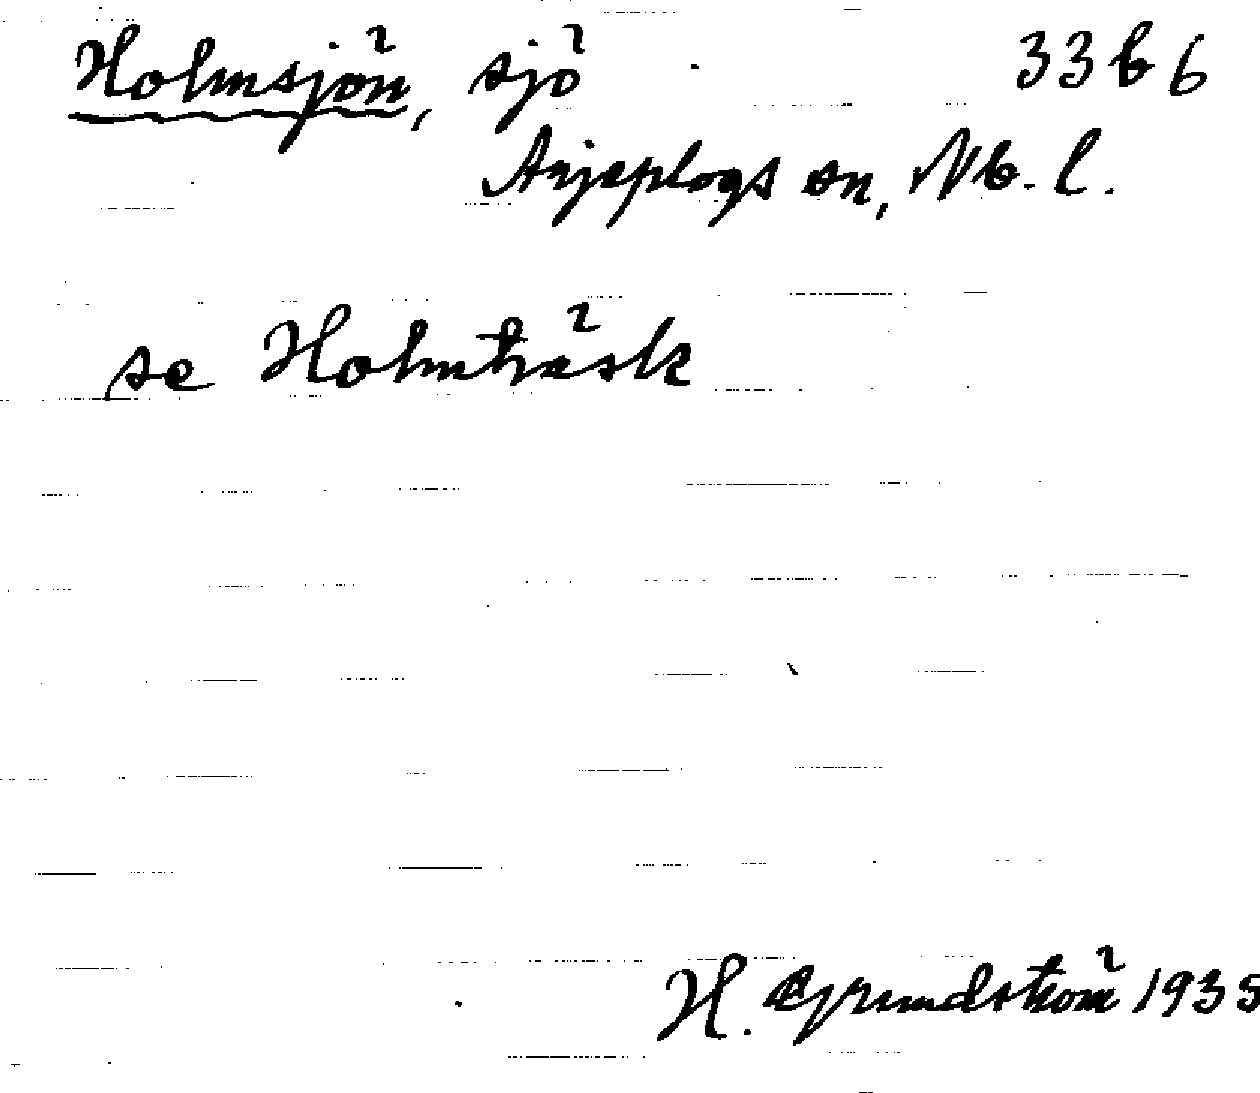 Holmsjön, sjö 33 b 6
Arjeplogs sn, Nb. l.
se Holmträsk
H. Grundström 1935